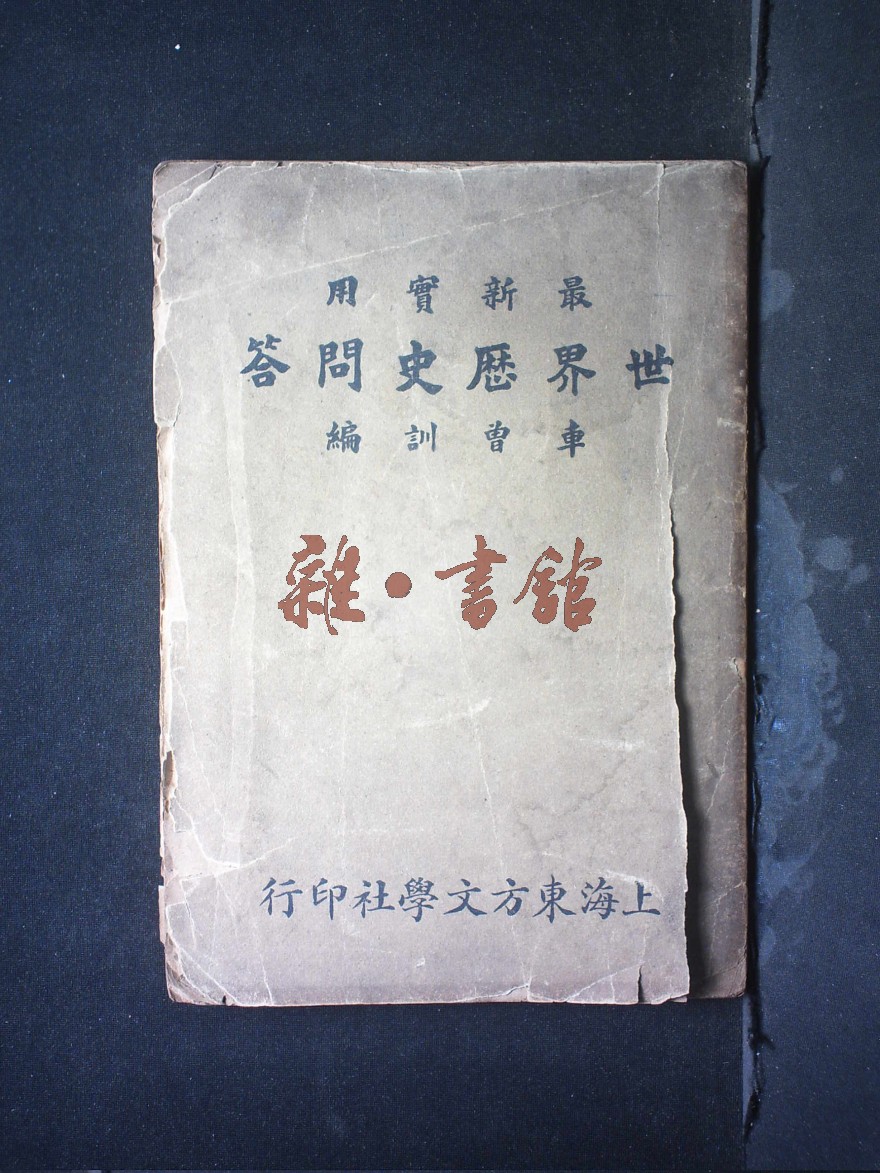 最新實用
世界歷史問答
車曾訓編
雜·書館
上海東方文學社印行